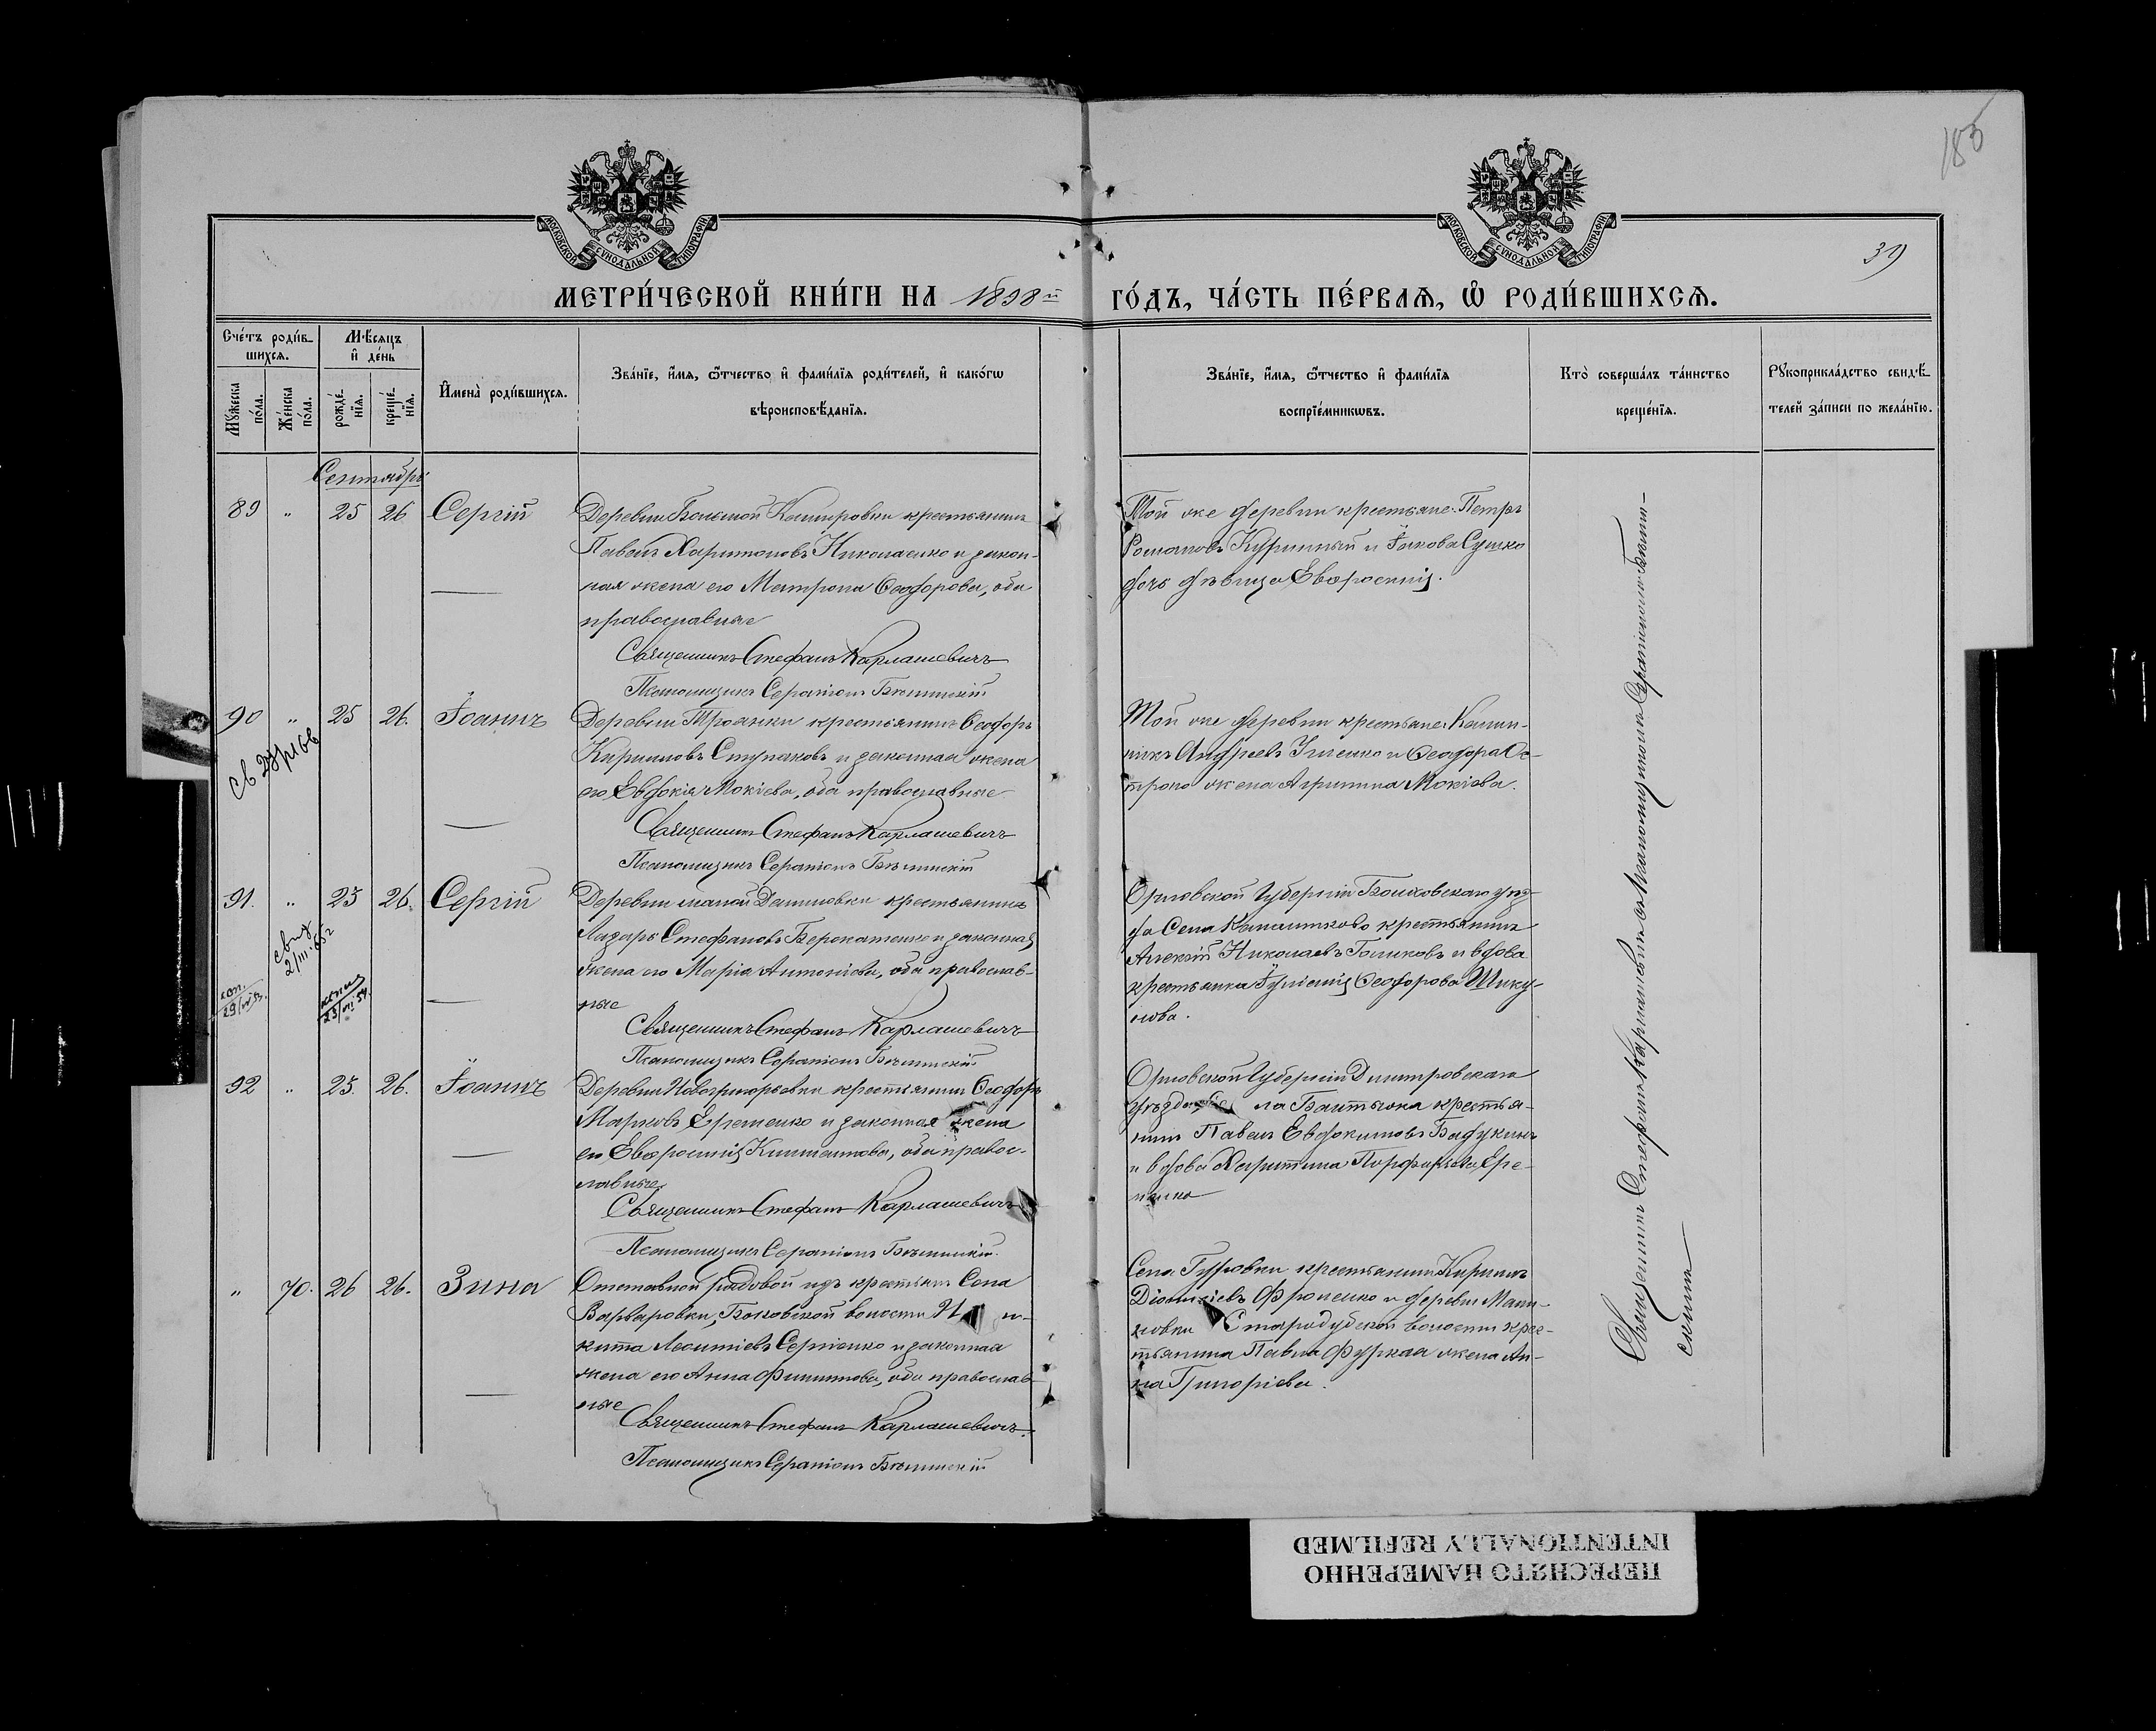 185
39
МОСКОВСКОЙ СѴНОДАЛЬНОЙ ТИПОГРАФІИ
МОСКОВСКОЙ СѴНОДАЛЬНОЙ ТИПОГРАФІИ
МЕТРИ́ЧЕСКОЙ КНИ́ГИ НА 1898й ГО́ДЪ, ЧА́СТЬ ПЕ́РВАѦ, Ѡ҆ РОДИ́ВШИХСѦ.
Сче́тъ роди́в-
шихсѧ.
Мꙋ́жеска по́ла.
Же́нска по́ла.
Мѣ́сѧцъ и҆ де́нь
рожде́-
нїѧ.
креще́-
нїѧ.
И҆мена̀ роди́вшихсѧ.
Зва́нїе, и҆́мѧ, ѻ҆́тчество и҆ фами́лїѧ роди́телей, и҆ како́гѡ
вѣроисповѣ́данїѧ.
Зва́нїе, и҆́мѧ, ѻ҆́тчество и҆ фами́лїѧ
воспрїе́мникѡвъ.
Кто̀ соверша́лъ та́инство
креще́нїѧ.
Рꙋкоприкла́дство свидѣ́-
телей за́писи по жела́нїю.
Сентябрь
89 " 25 26 Сергій
Деревни Большой Кашировки крестьянинъ
Павелъ Харитоновъ Николаенко и закон-
ная жена его Матрона Ѳеодорова, оба
православные
Священникъ Стефанъ Карлашевичъ
Псаломщикъ Серапіонъ
Той же деревни крестьяне: Петръ
Романовъ Куринный и Іакова Сушко
дочь дѣвица Евфросинія.
90 " 25 26. Іоаннъ
Деревни Троянки крестьянинъ Ѳеодоръ
Кирилловъ Ступаковъ и законная жена
его Евдокія Мокіева, оба православные
Священникъ Стефанъ Карлашевичъ
Псаломщикъ Серапіонъ
Той же деревни крестьяне: Калин-
никъ Андреевъ Ильенко и Ѳеодора Ос-
трого жена Агрипина Мокіева.
91. " 25 26. Сергій
свид
2/III 65г
коп.
29/VI 53.
копия
25/VI 54.
Деревни малой Даниловки крестьянинъ
Лазарь Стефановъ и законная
жена его Марія Антоніева, оба православ-
ные
Священникъ Стефанъ Карлашевичъ
Псаломщикъ Серапіонъ
Орловской Губерніи Болховского уѣз-
да Села крестьянинъ
Алексій Николаевъ Голиковъ и вдова
крестьянка Іуліанія Ѳеодорова Шику-
лова.
92 " 25. 26. Іоаннъ
Деревни Новогригорьевки крестьянинъ Ѳеодоръ
Марковъ Еременко и законная жена
его Евфросинія Климентова, оба правос-
лавные.
Священникъ Стефанъ Карлашевичъ
Псаломщикъ Серапіонъ
Орловской Губерніи Дмитровскаго
уѣзда ла крестья-
нинъ Павелъ Евдокимовъ Бадукинъ
и вдова Харитина Порфирьева Ере-
менко
" 70. 26 26. Зина
Отставной рядовой изъ крестьянъ Села
Варваровки, волости
кита Леонтіевъ Сергіенко и законная
жена его Анна Филиппова, оба православ-
ные
Священникъ Стефанъ Карлашевичъ.
Псаломщикъ Серапіонъ
Села Гуровки крестьянинъ Кириллъ
Діонисіевъ Фроленко и деревни
Стародубской волости крес-
тьянина Павла жена Ан-
на Григоріева.
Священникъ Стефанъ Карлашевичъ съ Псаломщикомъ Серапіономъ
скимъ
ПЕРЕСНЯТО НАМЕРЕННО
INTENTIONALLY REFILMED